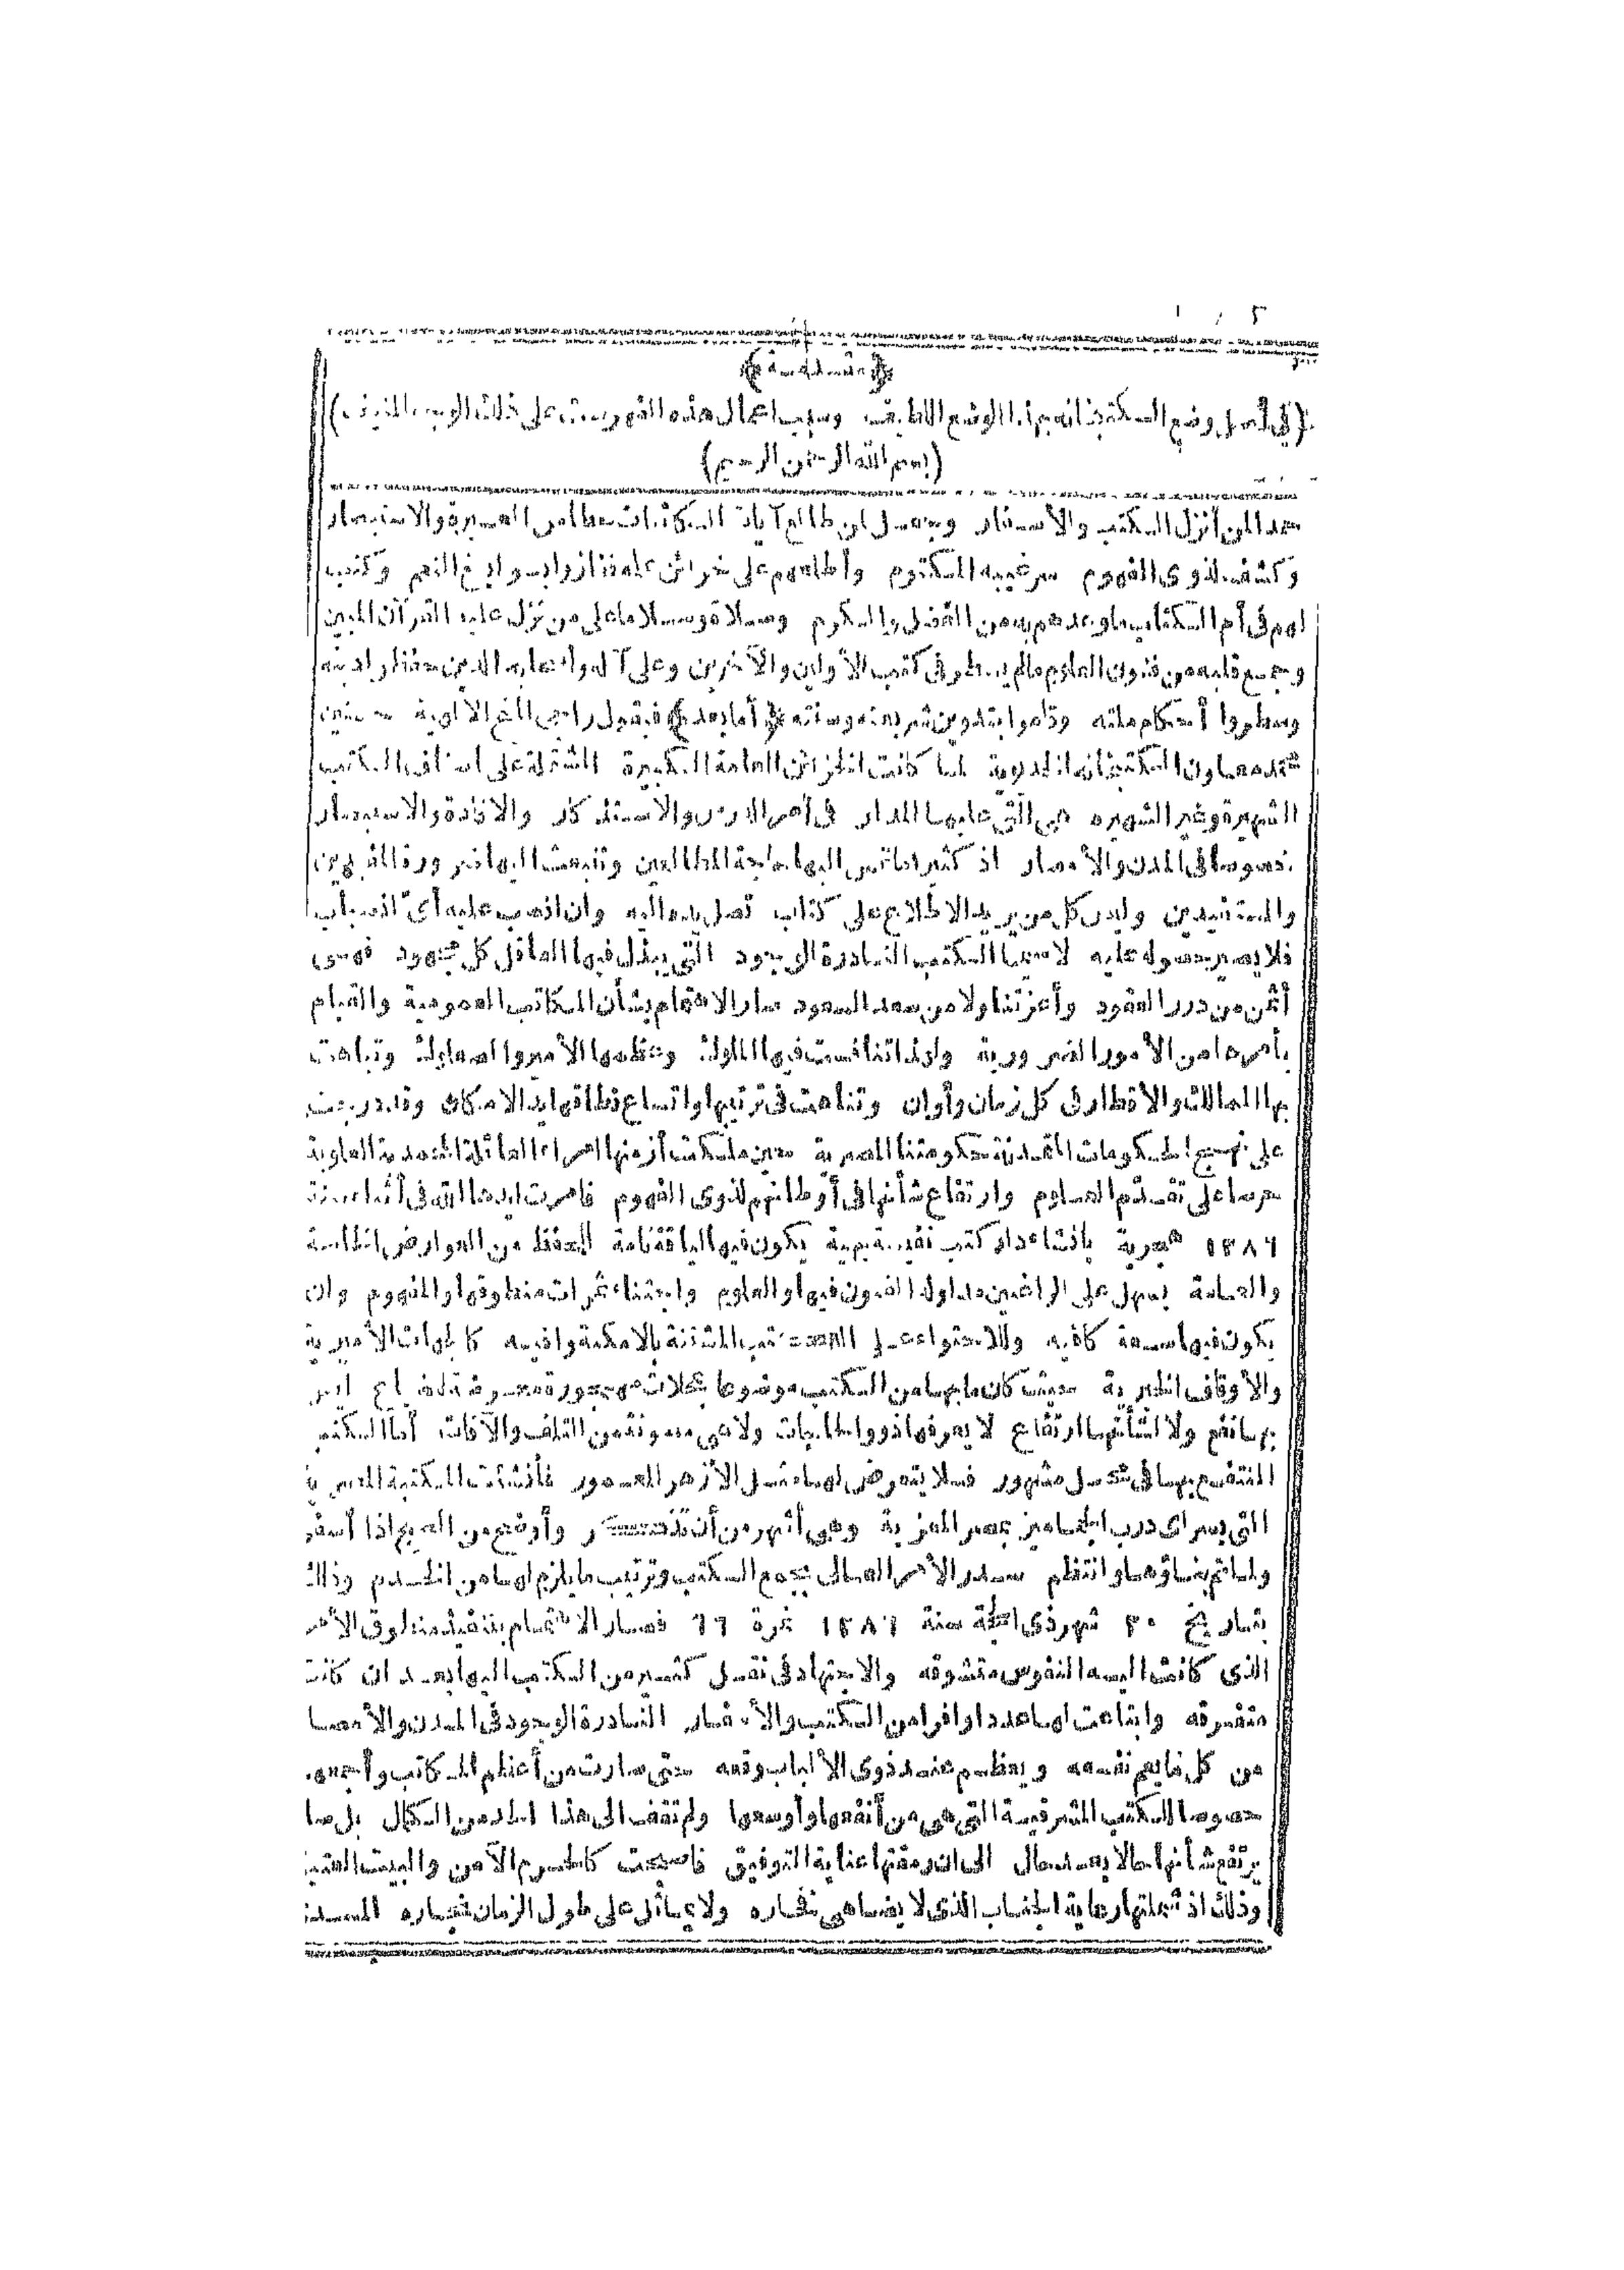 (مقدمة)
(في أصل وضع الكتبخانه بهذا الوضع اللطيف وسبب اعمال هذه الفهرست على ذلك الوجه المنيف)
(بسم الله الرحمن الرحيم)
حمدا لمن أنزل الكتب والأسفار وجعل لمن طالع آيات الكائنات مظاهر العبرة والاستبصار
وكشف لذوى الفهوم سر غيبه المكتوم وأطلعهم على خزائن علمه ففازوا بسوابغ النعم وكتب
لهم فى أم الكتاب ما وعدهم به من الفضل والكرم وصلاة وسلاما على من نزل عليه القرآن المبين
وجمع قلبه من فنون العلوم مالم يسطر فى كتب الأولين والآخرين وعلى آله وأصحابه الذين حفظوا دينه
وسطروا أحكام ملته وقاموا بتدوين شريعته وسنته (أما بعد) فيقول راجى المنح الالهية
الكتبخانه الخديوية لما كانت الخزائن العامة الكبيرة المشتملة على أصناف الكتب
الشهيرة وغير الشهيره هى التى عليها المدار فى أمر الدرس والاستذكار والافادة والاستبصار
خصوصا فى المدن والأمصار اذ كثيرا ما تمس اليها حاجة المطالعين وتنبعث اليها ضرورة المفيدين
والمستفيدين وليس كل من يريد الاطلاع على كتاب تصل يده اليه وان انصب عليه أى انصباب
فلا يصير حصوله عليه لاسيما الكتب النادرة الوجود التى يبذل فيها العاقل كل مجهود فهى
أثمن من درر العقود وأعز تناولا من سعد السعود صار الاهتمام بشأن المكاتب العمومية والقيام
بأمرها من الأمور الضرورية ولذا تنافست فيها الملوك وعظمها الأمير والصعلوك وتباهت
بها الممالك والأقطار فى كل زمان وأوان وتناهت فى ترتيبها واتساع نطاقها يد الامكان وقد درجت
على نهج الحكومات المتمدنة حكومتنا المصرية حين ملكت أزمتها أمراء العائلة المحمدية العلوية
حرصا على تقدم العلوم وارتفاع شأنها فى أوطانهم لذوى الفهوم فأمرت ايدها الله فى أثناء سنة
١٢٨٦ هجرية بانشاء دار كتب نفيسة بهية يكون فيها لياقة تامة للحفظ من العوارض الخاصة
والعامة يسهل على الراغبين تداول الفنون فيها والعلوم واجتناء ثمرات منطوقها والمفهوم وان
يكون فيها سعة كافيه وللاحتواء على الكتب المشتتة بالامكنة وافيه كالجهات الأميرية
والأوقاف الخيرية حيث كان ما بها من الكتب موضوعا بمحلات مهجورة معروضة للضياع ليس
بها نفع ولا لشأنها ارتفاع لا يعرفها ذوو الحاجات ولا هى مصونة من التلف والآفات أما الكتب
المنتفع بها فى محل مشهور فلا يتعرض لها مثل الأزهر المعمور فأنشئت المكتبة المصرية
التى بسراى درب الجماميز بمصر المعزية وهى أشهر من أن تذكر وأوضح من الصبح اذا أسفر
ولما تم بناؤها وانتظم صدر الأمر العالى بجمع الكتب وترتيب ما يلزم لها من الخدم وذلك
بتاريخ ٢٠ شهر ذى الحجة سنة ١٢٨٦ نمرة ٦٦ فصار الاهتمام بتنفيذ منطوق الأمر
الذى كانت اليه النفوس متشوقه والاجتهاد فى نقل كثير من الكتب اليها بعد ان كانت
متفرقه وابتاعت لها عددا وافرا من الكتب والأسفار النادرة الوجود فى المدن والأمصا
من كل ما يعم نفعه ويعظم عند ذوى الألباب وقعه حتى صارت من أعظم المكاتب وأجمعه
خصوصا الكتب الشرقية التى هى من أنفعها وأوسعها ولم تقف الى هذا الحد من الكمال بل صا
يرتفع شأنها حالا بعد حال الى ان رمقتها عناية التوفيق فأصبحت كالحرم الآمن والبيت العتيق
وذلك اذ شملتها رعاية الجناب الذى لا يضاهى فخاره ولا يماثل على طول الزمان